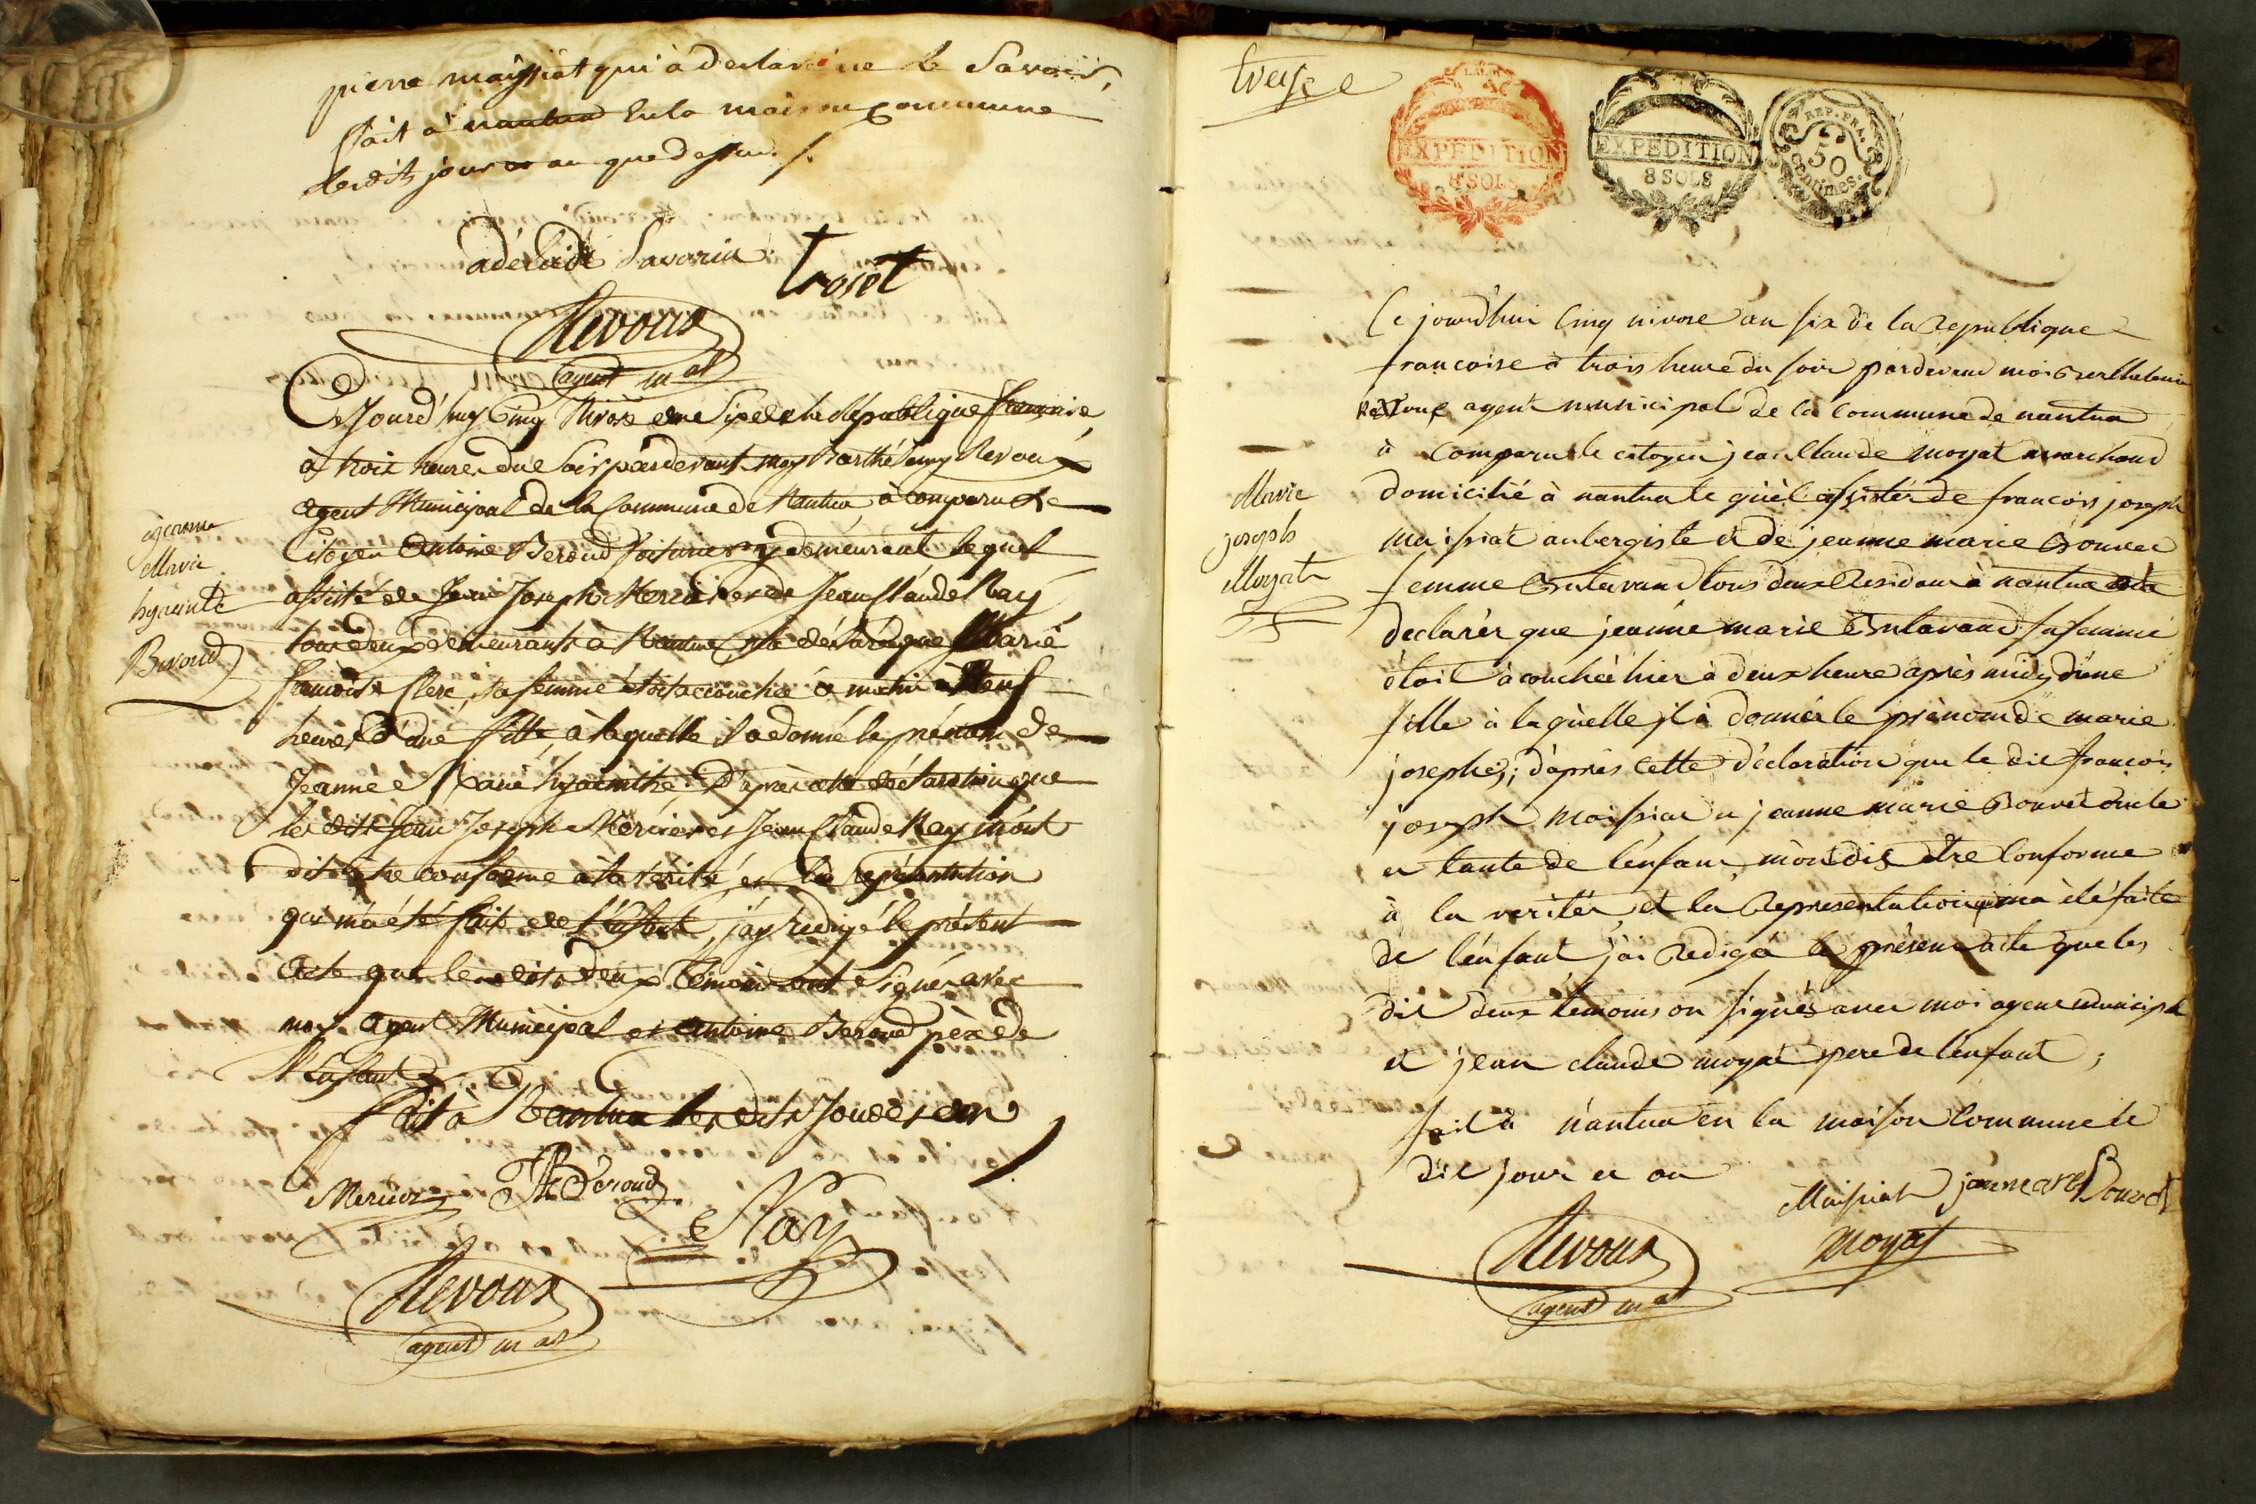 pierre maissiat qui à declaré ne le Savoir,
fait à nantua En la maison Commune
lesdits jour et an que dessus /.
adélaide Savarin
trosèt
Revoux
agent m al
Cejourd'huy Cinq Nivôse l'an Six de la République francaise
à trois heures du Soir pardevant moy Barthélemy Revoux
agent Municipal de la Commune de Nantua à comparu Le
Citoyen Antoine Beroud Voiturier y demeurant lequel
assisté de Jean Joseph Mercier et de Jean Claude Ray
tous deux demeurants à Nantua m'a déclaré que Marie
francoise Clerc, sa femme étoit accouchée ce matin à Neuf
heures d'une fille à laquelle il a donné le prénom de
Jeanne Marie hyacinthe. D'après cette déclaration que
les dits Jean Joseph Mercier et Jean Claude Ray m'ont
dit être conforme à la vérité, et la représentation
qui m'a été faite de l'Enfant, j'ay rédigé le présent
Acte que lesdits deux Témoins ont Signés avec
moy agent Municipal et Antoine Beroud père de
l'Enfant
fait à Nantua les dits Jour et an
jeanne
Marie
hyacinte
Beroud
Mercier Beroud
Ray
Revoux
agent m al
treise
EXPEDITION
8 SOLS
EXPEDITION
8 SOLS
REP. FRA.
50
Centimes.
Ce jourd'hui Cinq nivose an six de la Republique
francoise à trois heure du soir pardevant moi Berthelemi
Revoux agent municipal de la Commune de nantua
à Comparu le citoyen jean Claude moyat marchand
domicilié à nantua le quèl assistér de francois joseph
maissiat aubergiste et de jeanne marie Bouvet
femme tous deux Residant à nantua
declarér que jeanne marie sa femme
étoit àcouchée hier à deux heure après midy d'une
fille à laquelle il à donnér le prénom de marie
josephe; d'après cette déclaration que le dit francois
joseph maissiat et jeanne marie Bouvet oncle
et tante de l'enfant m'on dis être Conforme
à la veritér et la Representation qui m'a été faite
de l'enfant j'ai Redigé le présent acte que les
dit deux témoins on signés avec moi agent municipal
et jean claude moyat pere de l'enfant;
fait à nantua en la maison Commune le
dit jour et an
Marie
joseph
Moyat
Maissiat jeanne marie Bouvet
Revoux moyat
agent m al